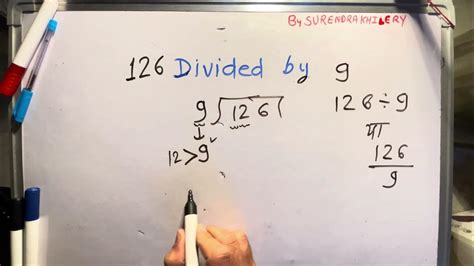 By SURENDRA KHILERY
126 Divided by 9
9)126(
12>9
126÷9
या
126
9